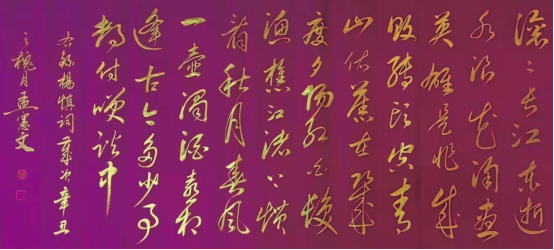 滚滚长江东逝
水浪花淘盡
英雄是非成
敗转头空青
山依舊在幾
度夕陽红白发
渔樵江渚上惯
看秋月春风
一壶濁酒喜相
逢古今多少事
都付笑谈中
右録楊慎詞歲次辛丑
之槐月孟憲文